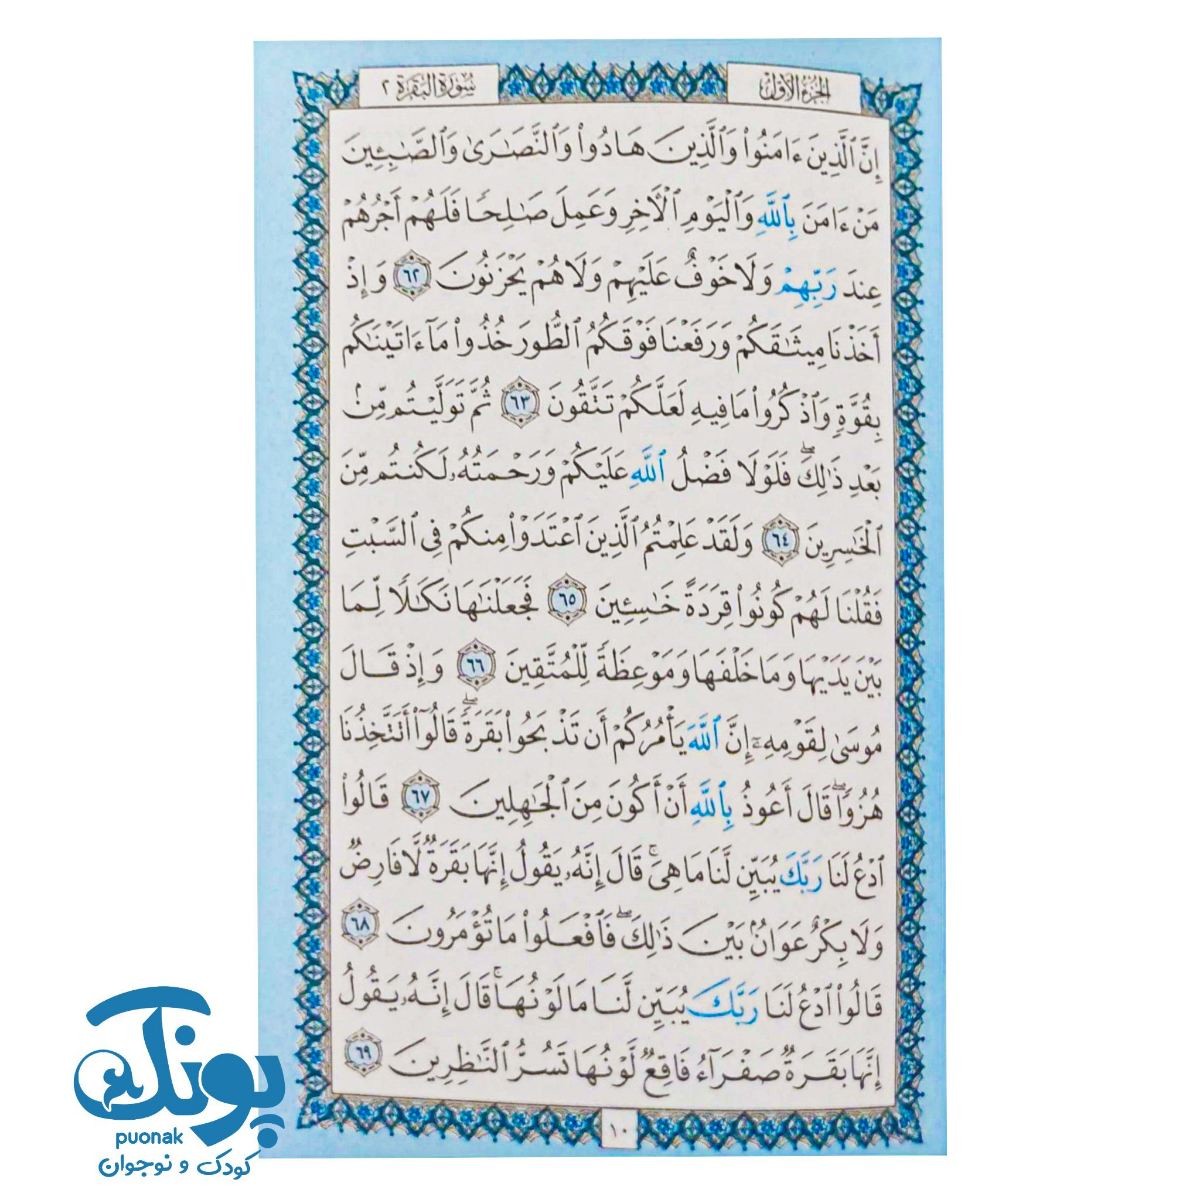 الجزء الأول
سورة البقرة ٢
إِنَّ ٱلَّذِينَ ءَامَنُوا۟ وَٱلَّذِينَ هَادُوا۟ وَٱلنَّصَـٰرَىٰ وَٱلصَّـٰبِـِٔينَ
مَنْ ءَامَنَ بِٱللَّهِ وَٱلْيَوْمِ ٱلْـَٔاخِرِ وَعَمِلَ صَـٰلِحًا فَلَهُمْ أَجْرُهُمْ
عِندَ رَبِّهِمْ وَلَا خَوْفٌ عَلَيْهِمْ وَلَا هُمْ يَحْزَنُونَ ٦٢ وَإِذْ
أَخَذْنَا مِيثَـٰقَكُمْ وَرَفَعْنَا فَوْقَكُمُ ٱلطُّورَ خُذُوا۟ مَآ ءَاتَيْنَـٰكُم
بِقُوَّةٍ وَٱذْكُرُوا۟ مَا فِيهِ لَعَلَّكُمْ تَتَّقُونَ ٦٣ ثُمَّ تَوَلَّيْتُم مِّنۢ
بَعْدِ ذَٰلِكَ ۖ فَلَوْلَا فَضْلُ ٱللَّهِ عَلَيْكُمْ وَرَحْمَتُهُۥ لَكُنتُم مِّنَ
ٱلْخَـٰسِرِينَ ٦٤ وَلَقَدْ عَلِمْتُمُ ٱلَّذِينَ ٱعْتَدَوْا۟ مِنكُمْ فِى ٱلسَّبْتِ
فَقُلْنَا لَهُمْ كُونُوا۟ قِرَدَةً خَـٰسِـِٔينَ ٦٥ فَجَعَلْنَـٰهَا نَكَـٰلًا لِّمَا
بَيْنَ يَدَيْهَا وَمَا خَلْفَهَا وَمَوْعِظَةً لِّلْمُتَّقِينَ ٦٦ وَإِذْ قَالَ
مُوسَىٰ لِقَوْمِهِۦٓ إِنَّ ٱللَّهَ يَأْمُرُكُمْ أَن تَذْبَحُوا۟ بَقَرَةً ۖ قَالُوٓا۟ أَتَتَّخِذُنَا
هُزُوًا ۖ قَالَ أَعُوذُ بِٱللَّهِ أَنْ أَكُونَ مِنَ ٱلْجَـٰهِلِينَ ٦٧ قَالُوا۟
ٱدْعُ لَنَا رَبَّكَ يُبَيِّن لَّنَا مَا هِىَ ۚ قَالَ إِنَّهُۥ يَقُولُ إِنَّهَا بَقَرَةٌ لَّا فَارِضٌ
وَلَا بِكْرٌ عَوَانٌۢ بَيْنَ ذَٰلِكَ ۖ فَٱفْعَلُوا۟ مَا تُؤْمَرُونَ ٦٨
قَالُوا۟ ٱدْعُ لَنَا رَبَّكَ يُبَيِّن لَّنَا مَا لَوْنُهَا ۚ قَالَ إِنَّهُۥ يَقُولُ
إِنَّهَا بَقَرَةٌ صَفْرَآءُ فَاقِعٌ لَّوْنُهَا تَسُرُّ ٱلنَّـٰظِرِينَ ٦٩
١٠
پونک
puonak
کودک و نوجوان